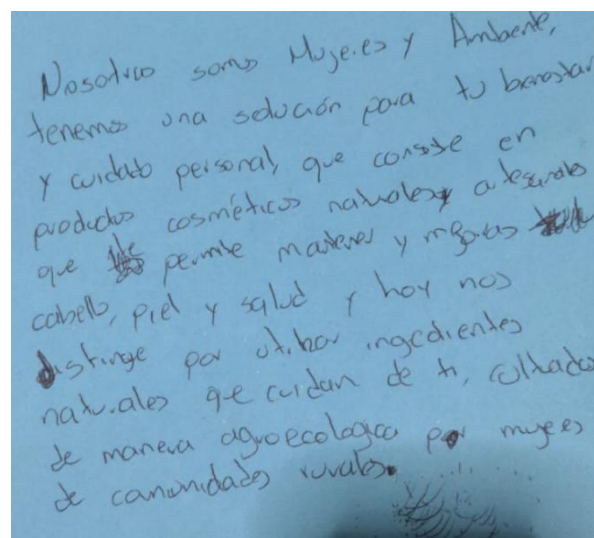 Nosotras somos Mujeres y Ambiente,
tenemos una solución para tu bienestar
y cuidado personal, que consiste en
productos cosméticos naturales y artesanales
que permite mantener y mejorar
cabello, piel y salud y hoy nos
distingue por utilizar ingredientes
naturales que cuidan de ti, cultivados
de manera agroecologica por mujeres
de comunidades rurales.